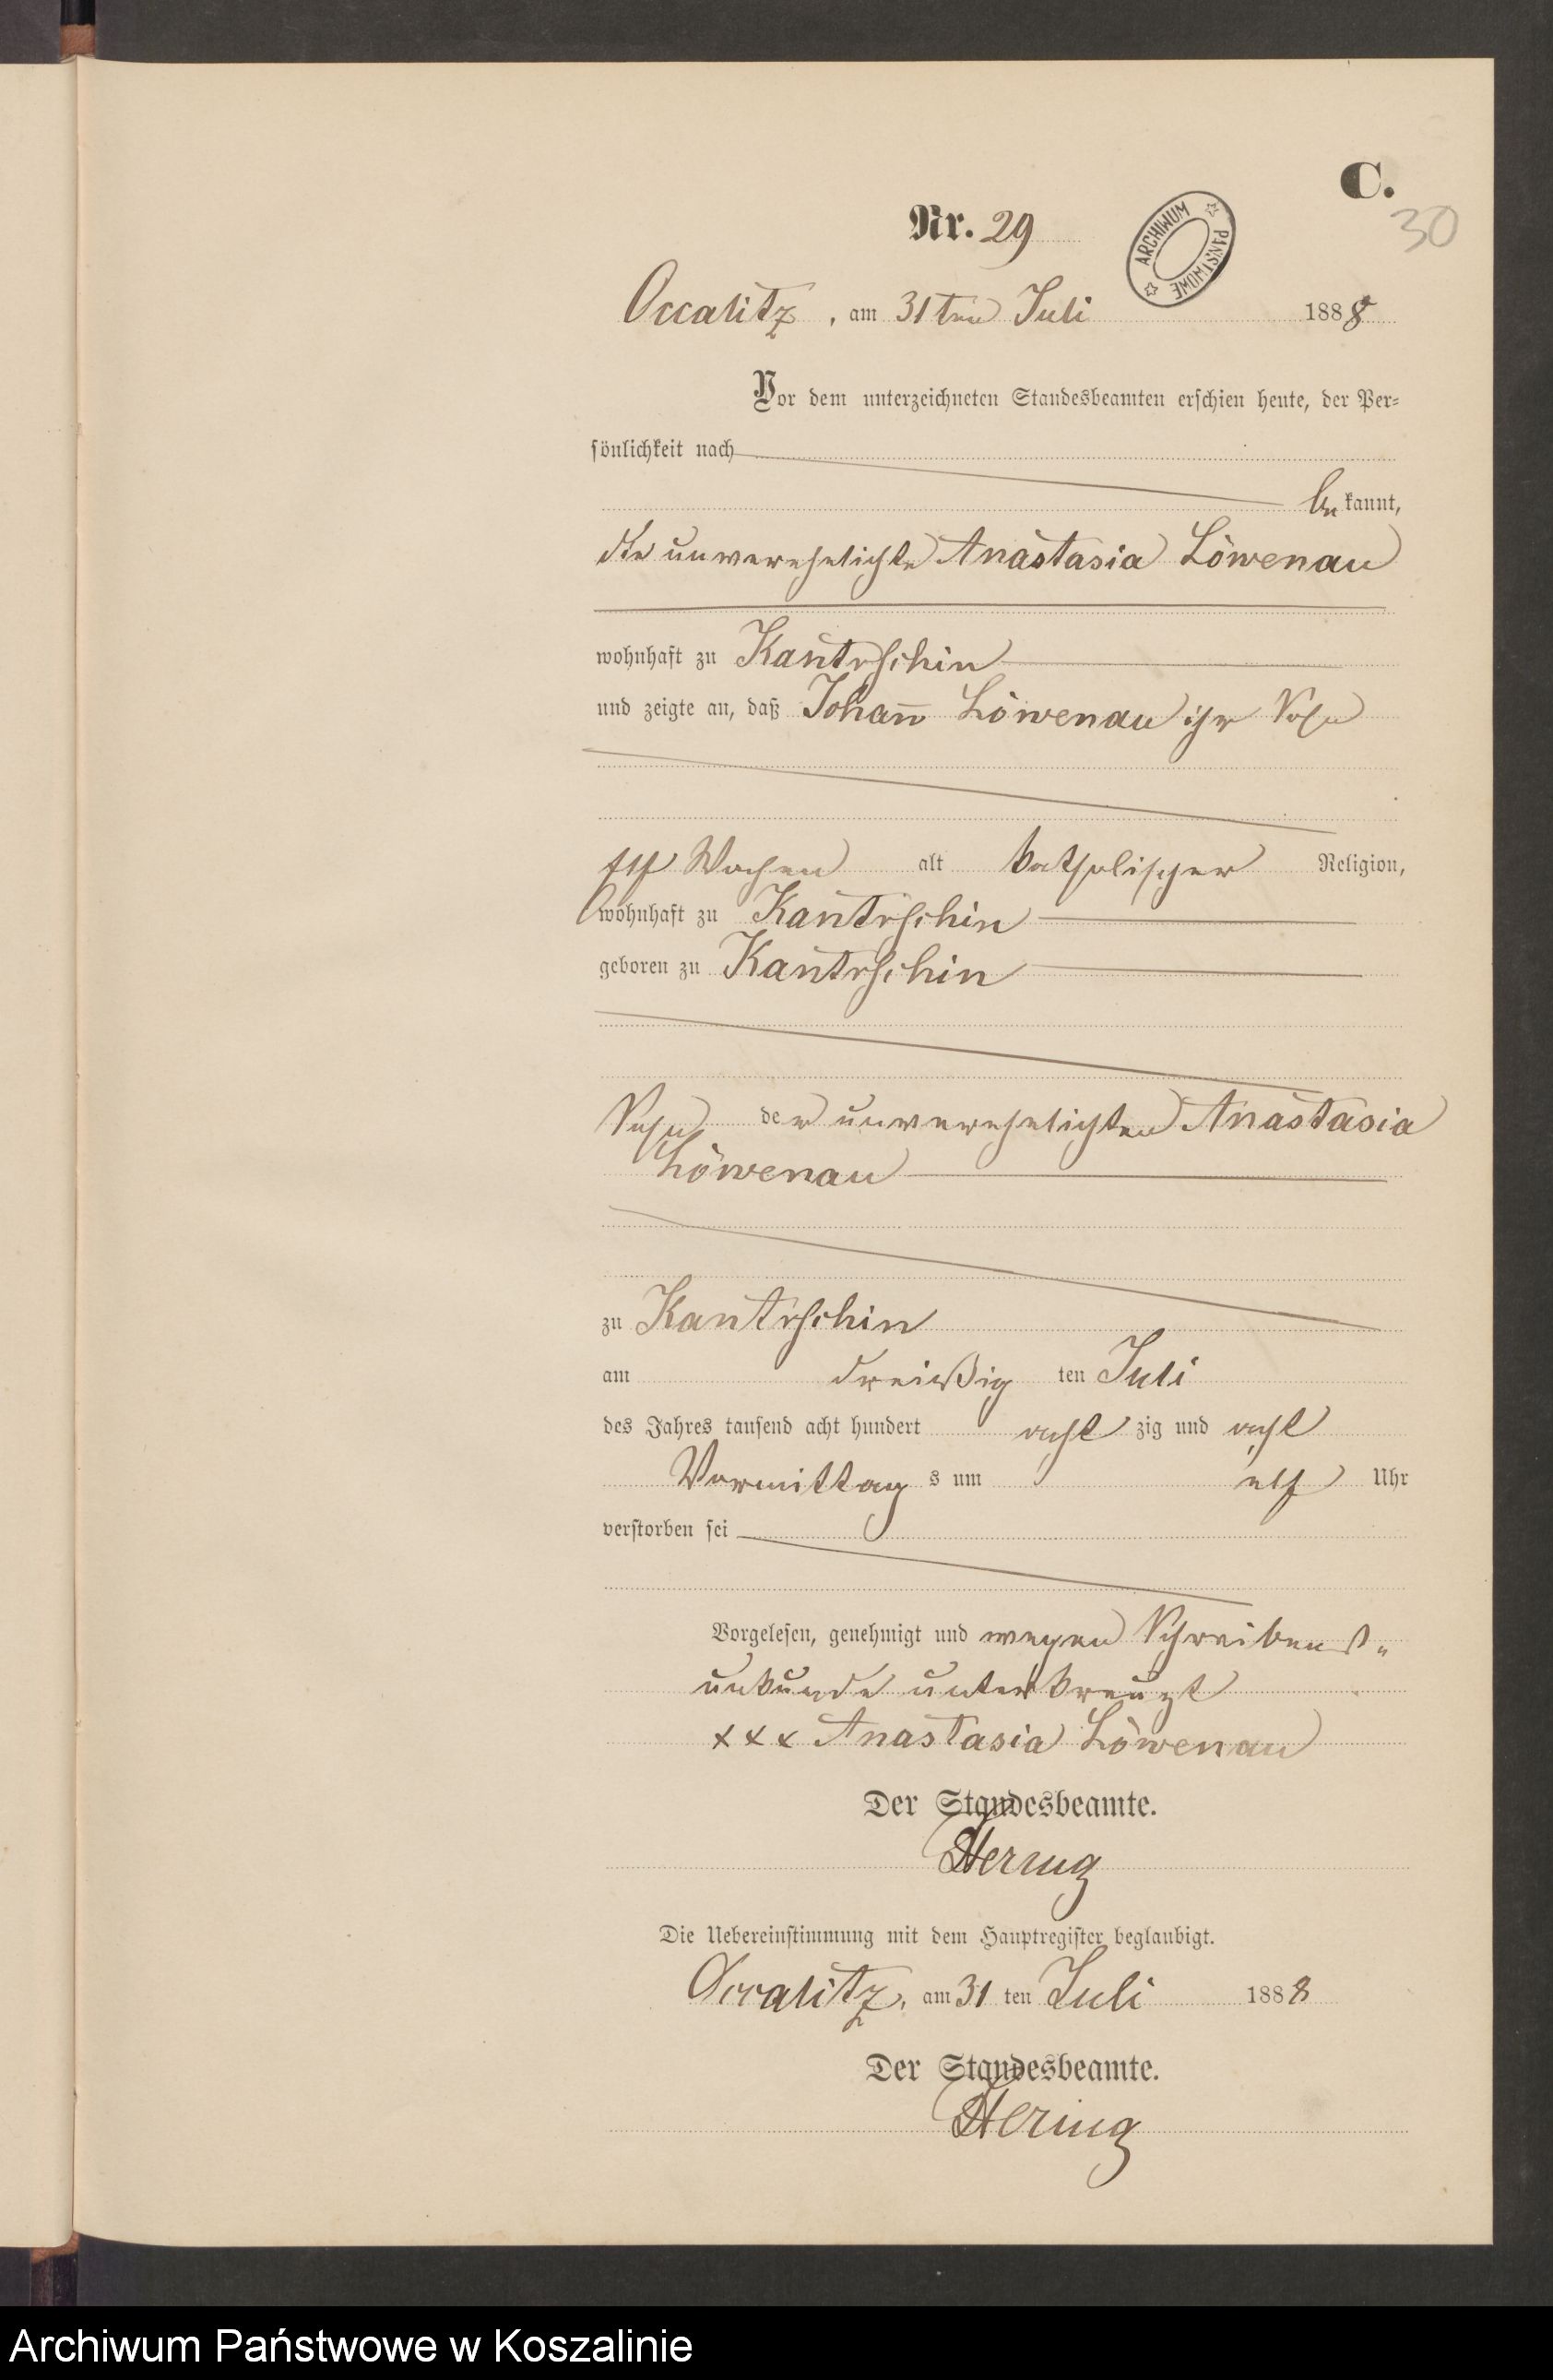 C.
30
Nr. 29
ARCHIWUM PAŃSTWOWE
Occalitz, am 31ten Juli 1888
Vor dem unterzeichneten Standesbeamten erschien heute, der Per-
sönlichkeit nach
be kannt,
die unverehelichte Anastasia Löwenau
wohnhaft zu Kantrschin
und zeigte an, daß Johann Löwenau ihr Sohn
elf Wochen alt katholischer Religion,
wohnhaft zu Kantrschin
geboren zu Kantrschin
Sohn der unverehelichten Anastasia
Löwenau
zu Kantrschin
am dreißig ten Juli
des Jahres tausend acht hundert acht zig und acht
Vormittag s um elf Uhr
verstorben sei
Vorgelesen, genehmigt und wegen Schreibens-
unkunde unterkreuzt
xxx Anastasia Löwenau
Der Standesbeamte.
Hering
Die Uebereinstimmung mit dem Hauptregister beglaubigt.
Occalitz, am 31 ten Juli 1888
Der Standesbeamte.
Hering
Archiwum Państwowe w Koszalinie